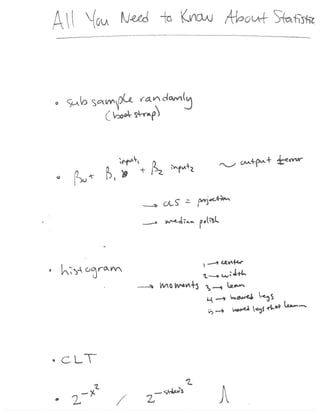 All You Need to Know About Statistic
• subsample randomly
(bootstrap)
• β0 + β1 input1 + β2 input2 ~ output ± error
→ OLS = projection
→ median polish
• histogram
→ moments
1 → center
2 → width
3 → lean
4 → bowed legs
5 → bowed legs that lean
• CLT
• 2^-x^2 / 2^-stdev's^2